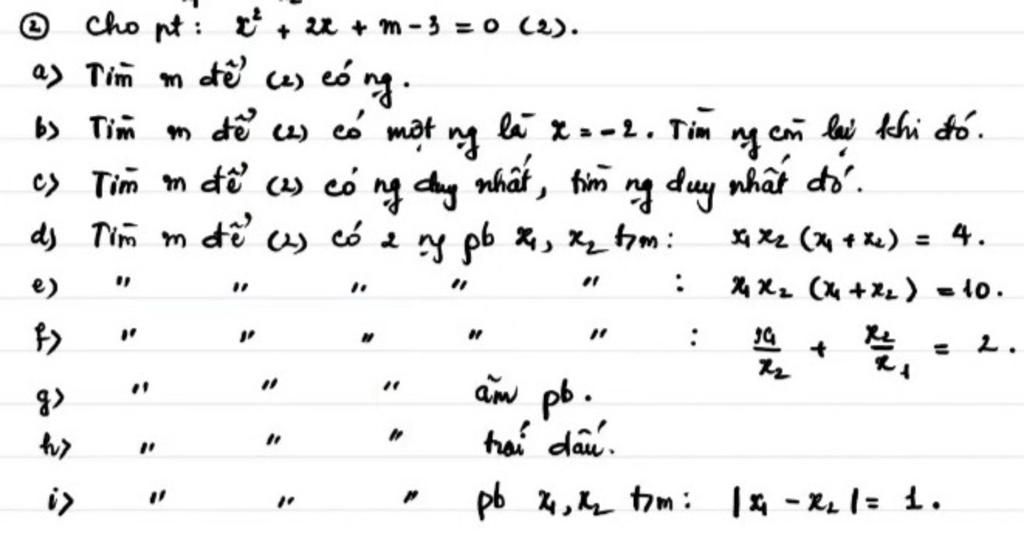 ② Cho pt: x² + 2x + m - 3 = 0 (2).
a) Tìm m để (2) có ng.
b) Tìm m để (2) có một ng là x = -2. Tìm ng còn lại khi đó.
c) Tìm m để (2) có ng duy nhất, tìm ng duy nhất đó.
d) Tìm m để (2) có 2 ng pb x₁, x₂ tm: x₁x₂(x₁ + x₂) = 4.
e) " " " " " : x₁x₂(x₁ + x₂) = 10.
f) " " " " " : x₁/x₂ + x₂/x₁ = 2.
g) " " " âm pb.
h) " " " trái dấu.
i) " " " pb x₁, x₂ tm: |x₁ - x₂| = 1.